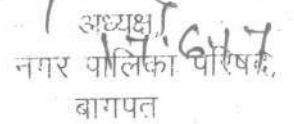 अध्यक्ष,
नगर पालिका परिषद,
बागपत